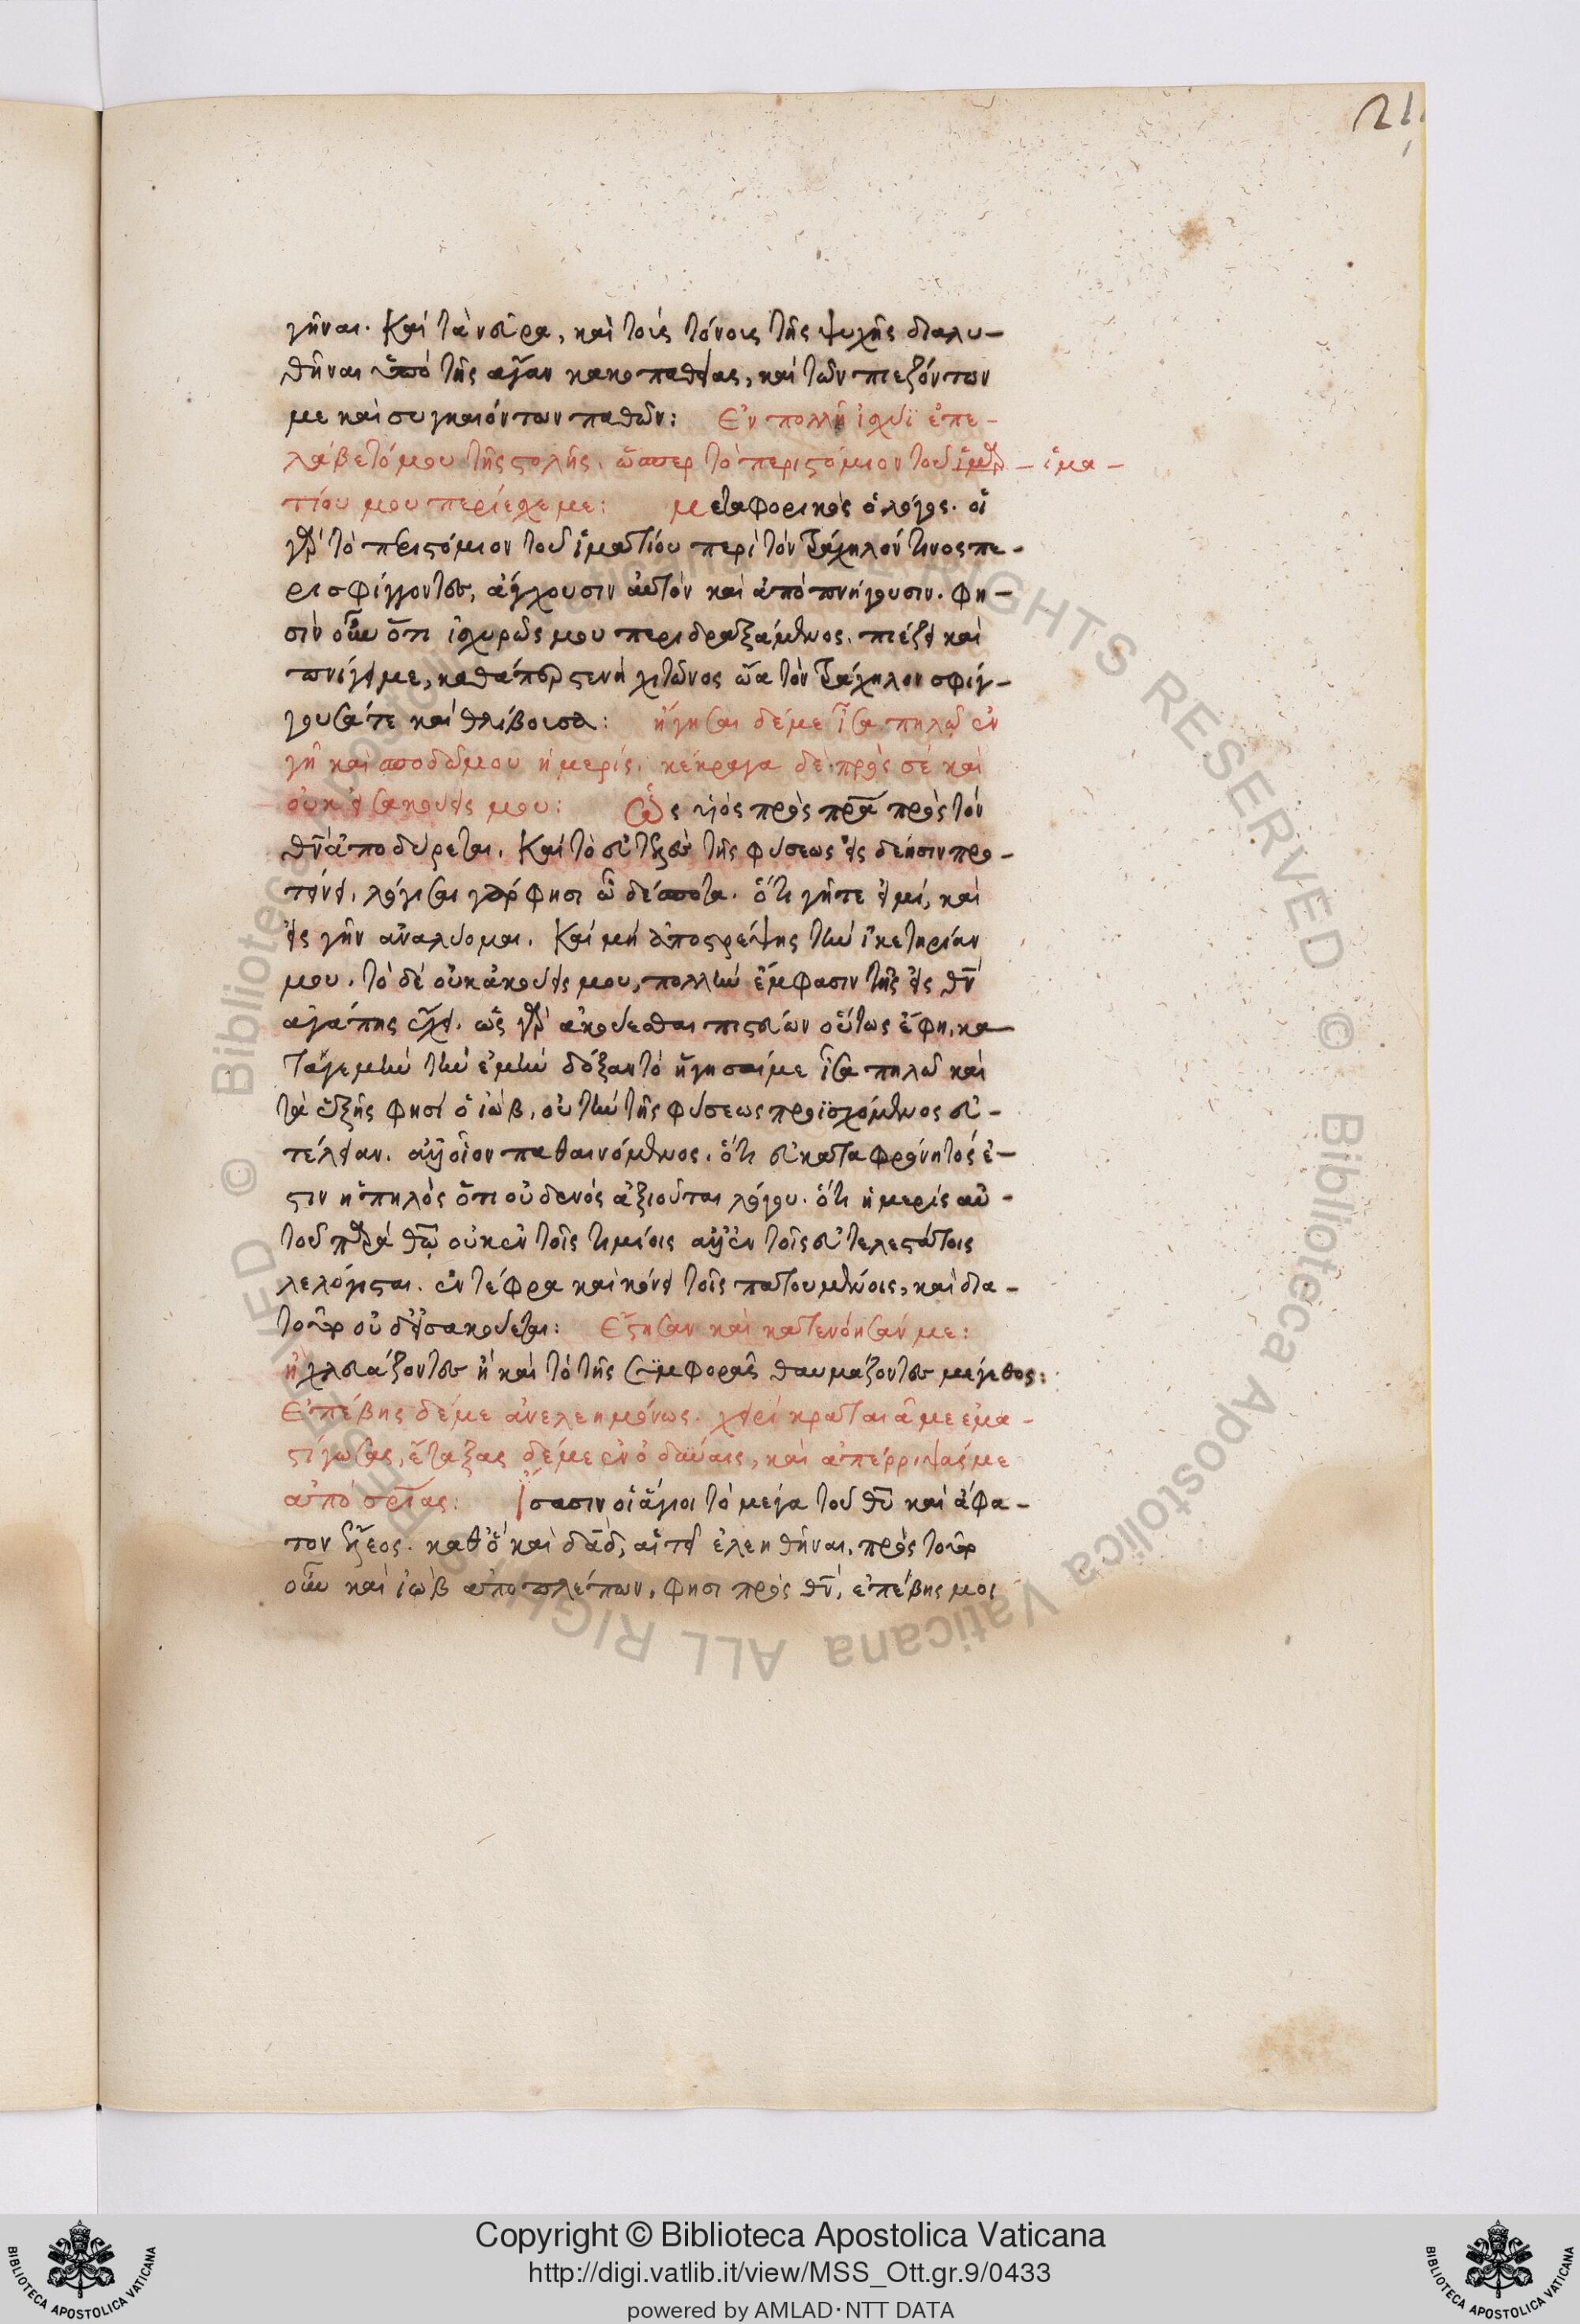 211
γῆναι. Καὶ τὰ νεῦρα, καὶ τοὺς τόνους τῆς ψυχῆς διαλυ-
θῆναι ὑπὸ τῆς ἄγαν κακοπαθείας, καὶ τῶν πιεζόντων
με καὶ συγκαιόντων παθῶν: Ἐν πολλῇ ἰσχύϊ ἐπε-
λάβετό μου τῆς στολῆς. ὥσπερ τὸ περιστόμιον τοῦ - ἱμα-
τίου μου περιέσχε με: μεταφορικὸς ὁ λόγος. οἱ
γὰρ τὸ περιστόμιον τοῦ ἱματίου περὶ τὸν τράχηλόν τινος πε-
ρισφίγγοντες, ἄγχουσιν αὐτὸν καὶ ἀποπνήγουσιν. φη-
σὶν οὖν ὅτι ἰσχυρῶς μου περιδραξάμενος, πιέζει καὶ
πνίγει με, καθάπερ στενὴ χιτῶνος ὤα τὸν τράχηλον σφίγ-
γουσά τε καὶ θλίβουσα: ἥγησαι δέ με ἶσα πηλῷ ἐν
γῇ καὶ σποδῷ μου ἡ μερίς. κέκραγα δὲ πρὸς σὲ καὶ
οὐκ εἰσακούεις μου: Ὡς υἱὸς πρὸς πρα πρὸς τὸν
θν ἀποδύρεται. Καὶ τὸ εὐτελὲς τῆς φύσεως εἰς δέησιν προ-
τείνει. λόγισαι γὰρ φησὶ ὦ δέσποτα. ὅτι γῆ τε εἰμί, καὶ
εἰς γῆν ἀναλύομαι. Καὶ μὴ ἀποστρέψῃς τὴν ἱκετηρίαν
μου. τὸ δὲ οὐκ ἀκούεις μου, πολλὴν ἔμφασιν τῆς εἰς θν
ἀγάπης ἔχει. ὡς γὰρ ἀκούεσθαι πιστεύων οὕτως ἔφη, κα
τά γε μὴν τὴν ἐμὴν δόξαν τὸ ἥγησαί με ἶσα πηλῷ καὶ
τὰ ἑξῆς φησὶ ὁ ἰώβ, οὐ τὴν τῆς φύσεως προϊσχόμενος εὐ-
τέλειαν. ἀλλ' οἷον παθαινόμενος. ὅτι εὐκαταφρόνητός ἐ-
στιν ἢ πηλὸς ὅτι οὐδενὸς ἀξιοῦται λόγου. ὅτι ἡ μερὶς αὐ-
τοῦ παρὰ θῶ οὐκ ἐν τοῖς τιμίοις ἀλλ' ἐν τοῖς εὐτελεστάτοις
λελόγισται. ἐν τέφρα καὶ κόνει τοῖς πατουμένοις, καὶ δια-
τοῦτο οὐδ' εἰσακούεται: Ἔστησαν καὶ κατενόησάν με:
ἢ χλευάζοντες ἢ καὶ τὸ τῆς συμφορᾶς θαυμάζοντες μέγεθος:
Ἐπέβης δέ με ἀνελεημόνως. χειρὶ κραταιᾷ με ἐμα-
στίγωσας, ἔταξας δέ με ἐν ὀδύναις, καὶ ἀπέρριψάς με
ἀπὸ σρίας: Ἴσασιν οἱ ἅγιοι τὸ μέγα τοῦ θυ καὶ ἄφα-
τον ἔλεος. καθ' ὃ καὶ δαδ, αἰτεῖ ἐλεηθῆναι. πρὸς τοῦτο
οὖν καὶ ἰὼβ ἀποβλέπων, φησὶ πρὸς θν, ἐπέβης μοι
Copyright © Biblioteca Apostolica Vaticana
http://digi.vatlib.it/view/MSS_Ott.gr.9/0433
powered by AMLAD·NTT DATA